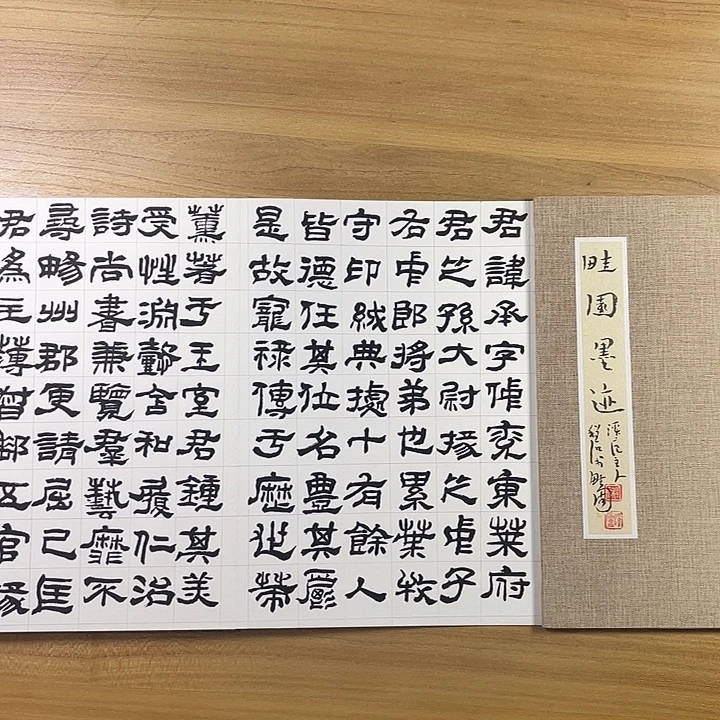 畦園墨迹
君諱承字仲兖東萊府
君之孫大尉掾之中子
右中郎將弟也累葉牧
守印紱典據十有餘人
皆德任其位名豐其爵
是故寵祿傳于歷世策
薰著于王室君鍾其美
受性淵懿含和履仁治
詩尚書兼覽羣藝靡不
尋暢州郡更請屈己匡
君為主薄督郵五官掾